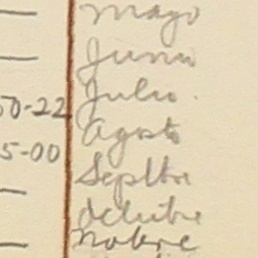 — Mayo
— Junio
50-22 Julio.
5-00 Agosto
— Septbre
— Octubre
— Nobre